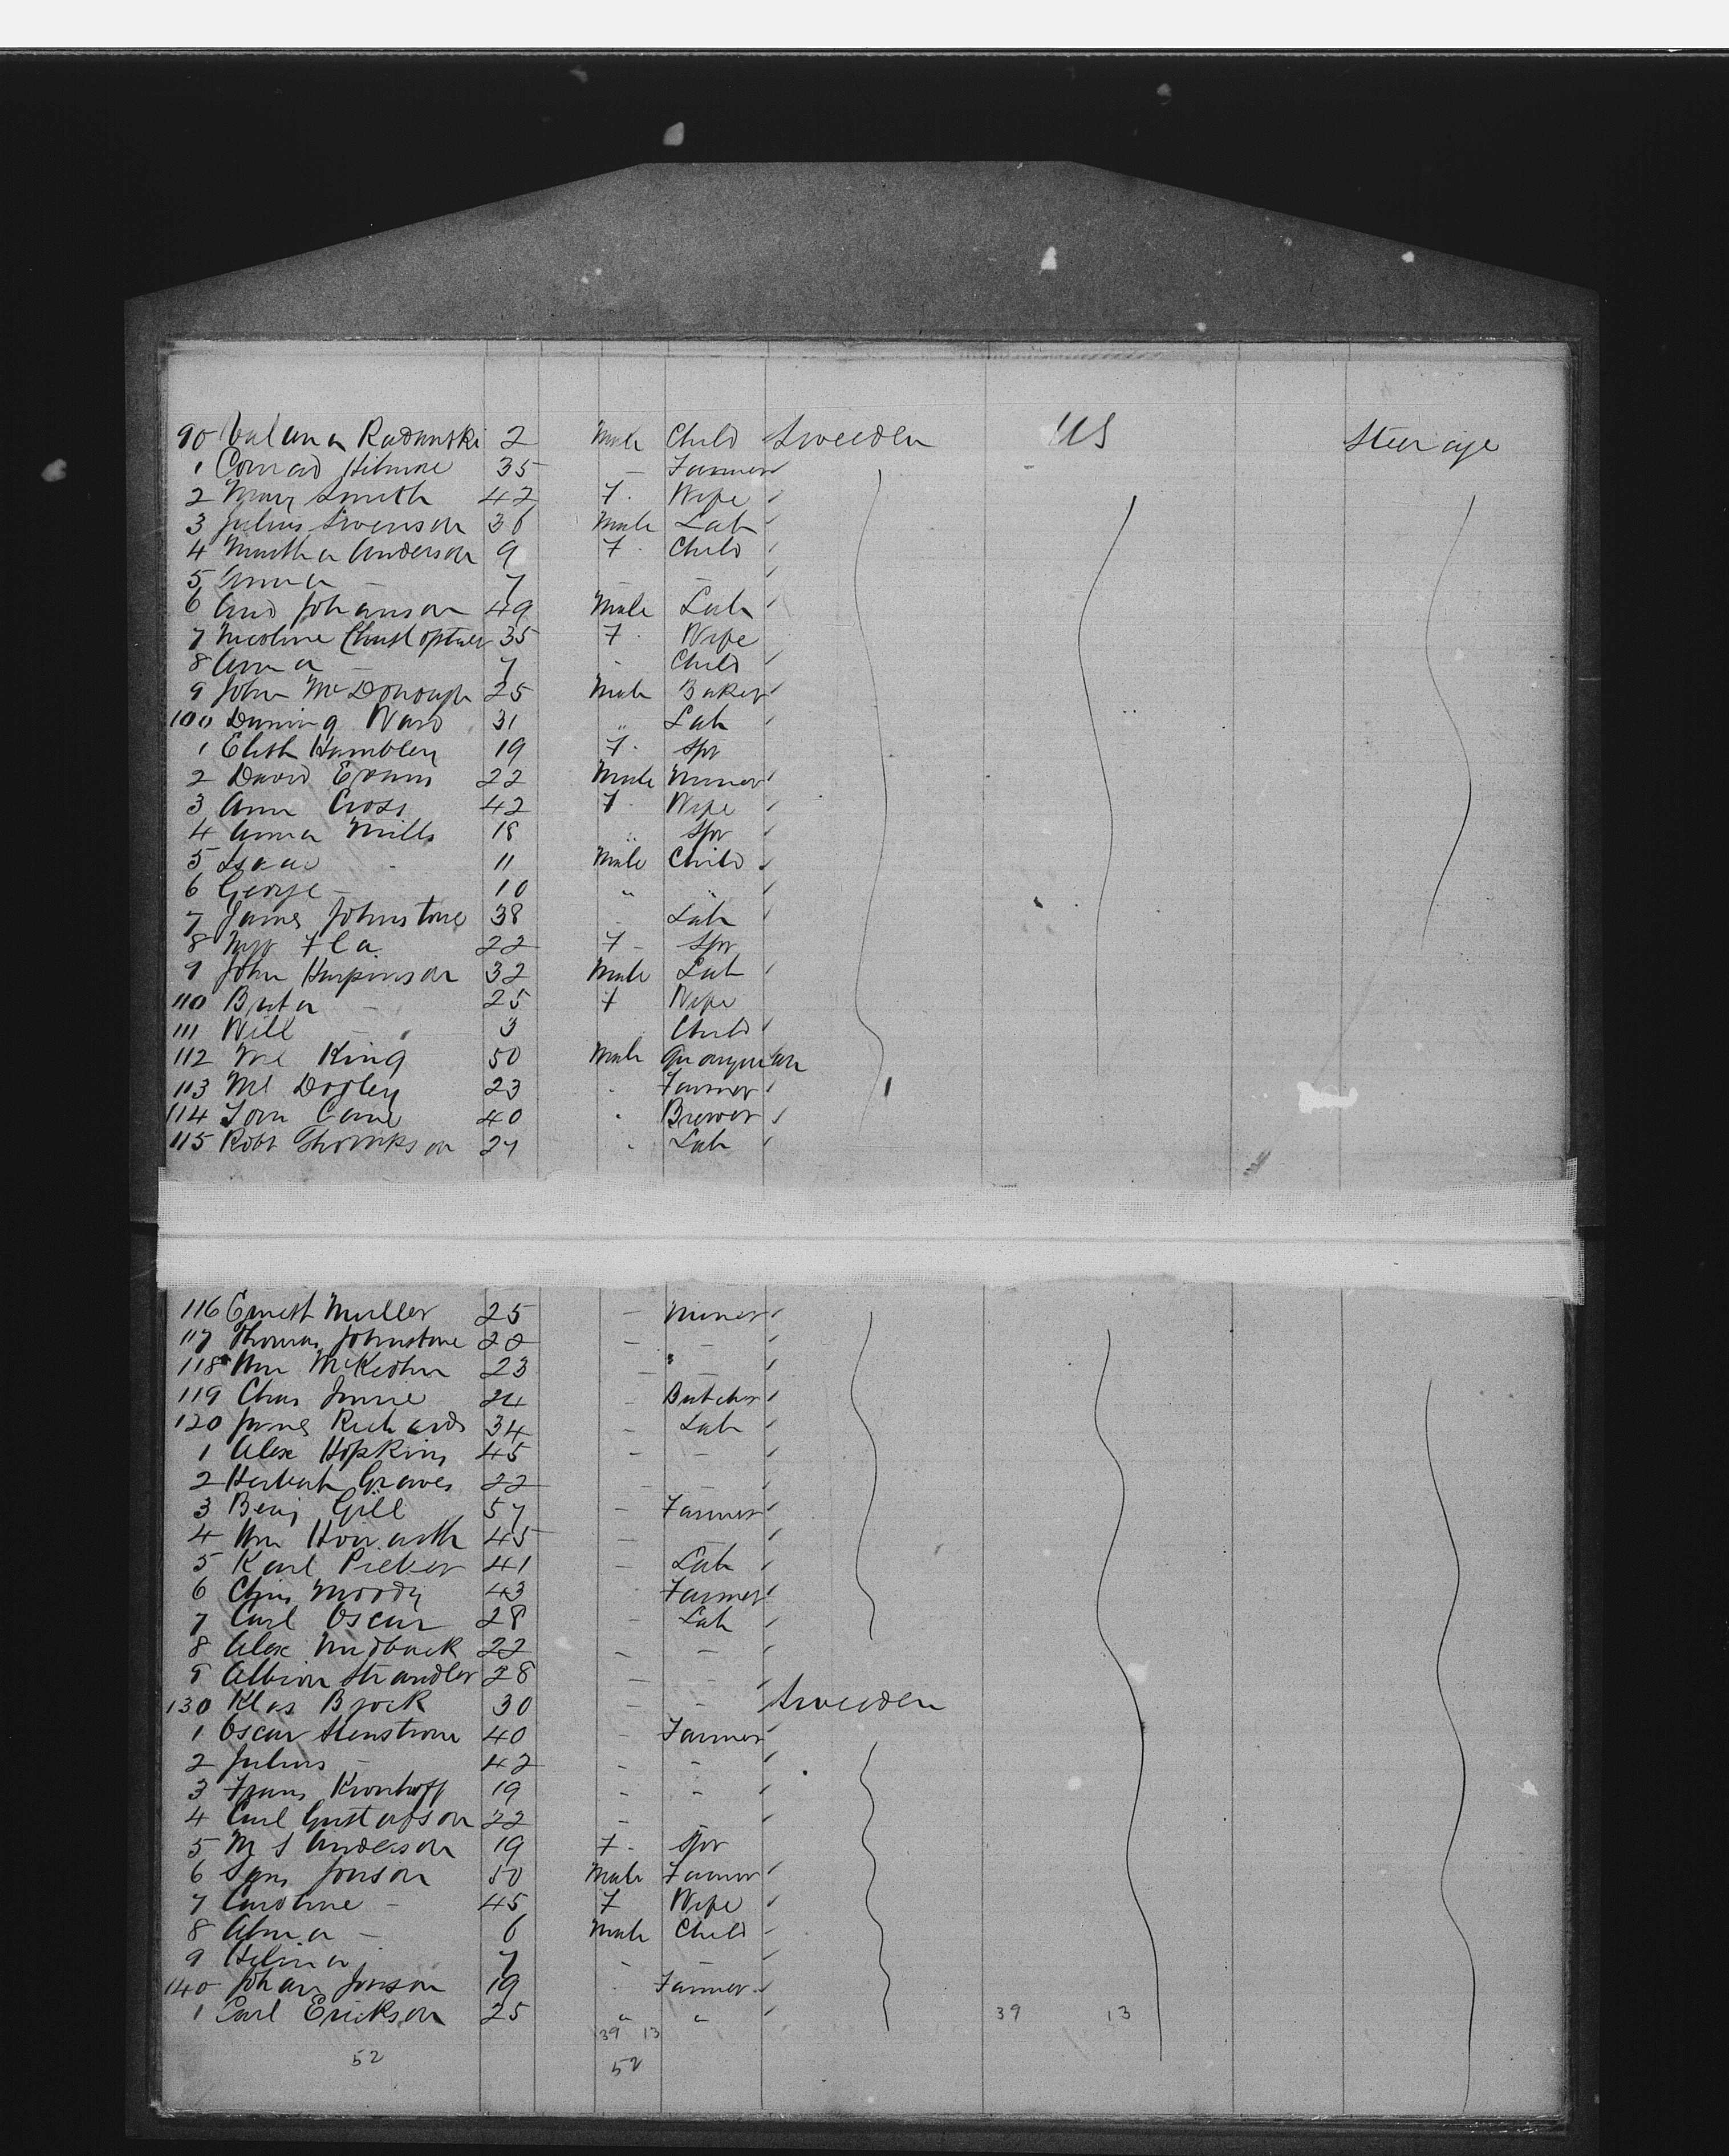 90 Valana Radanski 2 Male Child Sweeden US Steerage
1 Conrad 35 — Farmer
2 Mary Smith 42 F. Wife
3 Julius Swenson 36 Male Lab
4 Martha Anderson 9 F. Child
5 Anna — 7 — —
6 And Johanson 49 Male Lab
7 Nicoline 35 F. Wife
8 Anna — 7 - Child
9 John McDonough 25 Male Baker
100 Ward 31 " Lab
1 Elisth Hambley 19 F. Spr
2 David Evans 22 Male Miner
3 Ann Cross 42 F. Wife
4 Anna Mills 18 " Spr
5 Isaac - 11 Male Child
6 George - 10 " "
7 James Johnstone 38 - Lab
8 22 F - Spr
9 John 32 Male Lab
110 — 25 F Wife
111 Will — 3 Child
112 King 50 Male
113 Ml Dooley 23 - Farmer
114 Tom Cane 40 " Brewer
115 Robt Thompson 27 " Lab
116 Ernest Muller 25 — Miner
117 Thomas Johnstone 22 — —
118 Wm 23 — —
119 Chas 24 — Butcher
120 James Richards 34 — Lab
1 Alex Hopkins 45 — —
2 Herbert Graves 22 — —
3 Benj Gill 57 — Farmer
4 Wm Howarth 45 — —
5 Karl 41 — Lab
6 Chris Moody 43 Farmer
7 Carl Oscar 28 — Lab
8 Alex 22 — —
9 Albion Strandler 28 — —
130 Klas Bjork 30 — — Sweeden
1 Oscar Stenstrom 40 — Farmer
2 Julius — 42 - -
3 Frans Kronhoff 19 - -
4 Carl Gustafson 22 - -
5 M S Anderson 19 F. Spr
6 Jonson 50 Male Farmer
7 Caroline - 45 F Wife
8 Alma — 6 Male Child
9 7 -
140 Johan Jonson 19 Farmer
1 Carl Erikson 25 " " 39 13
39 13
52 52